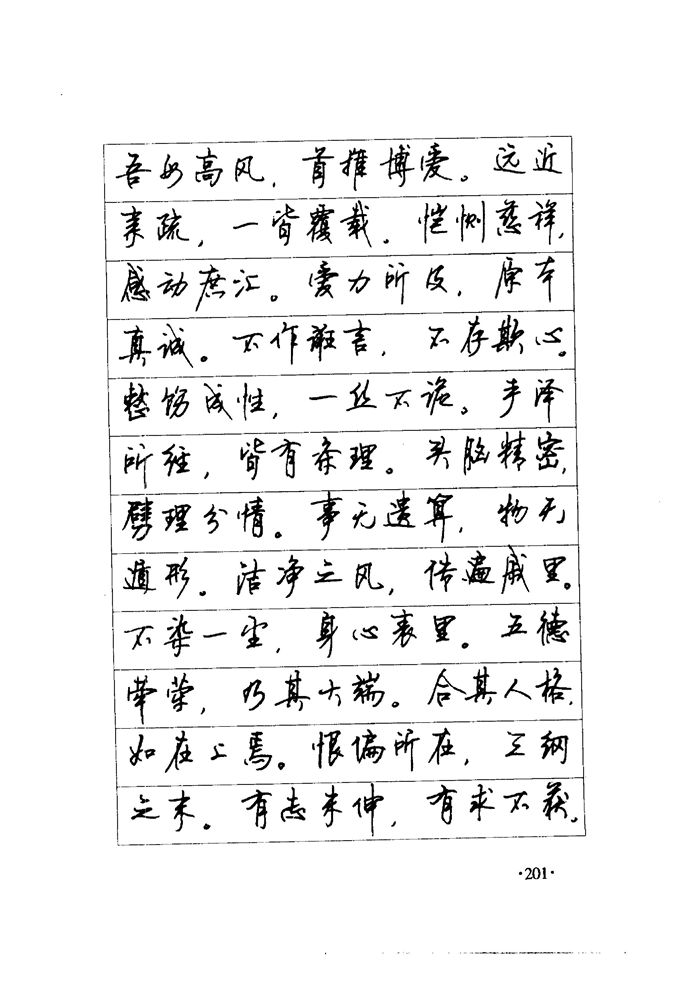 吾母高风，首推博爱。远近
亲疏，一皆覆载。恺恻慈祥，
感动庶汇。爱力所及，原本
真诚。不作诳言，不存欺心。
整饬成性，一丝不诡。手泽
所经，皆有条理。头脑精密，
劈理分情。事无遗算，物无
遁形。洁净之风，传遍戚里。
不染一尘，身心表里。五德
荦荦，乃其大端。合其人格，
如在上焉。恨偏所在，三纲
之末。有志未伸，有求不获。
·201·